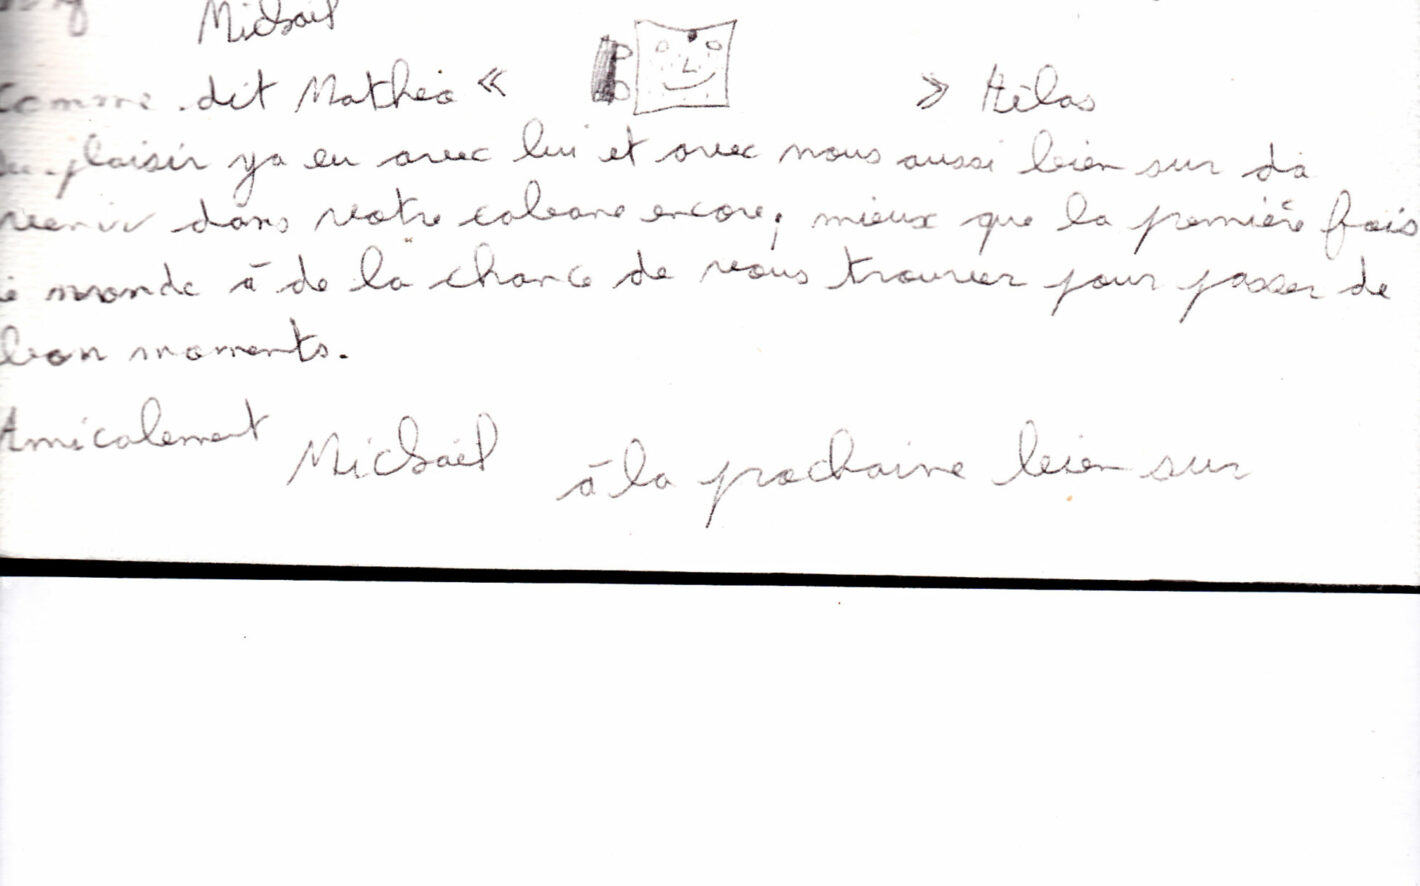 Michaël
Comme dit Mathéo « » Hélas
du plaisir ya eu avec lui et avec nous aussi bien sur d'à
venir dans votre cabane encore, mieux que la première fois
le monde à de la chance de vous trouver pour passer de
bon moments.
Amicalement Michaël à la prochaine bien sur